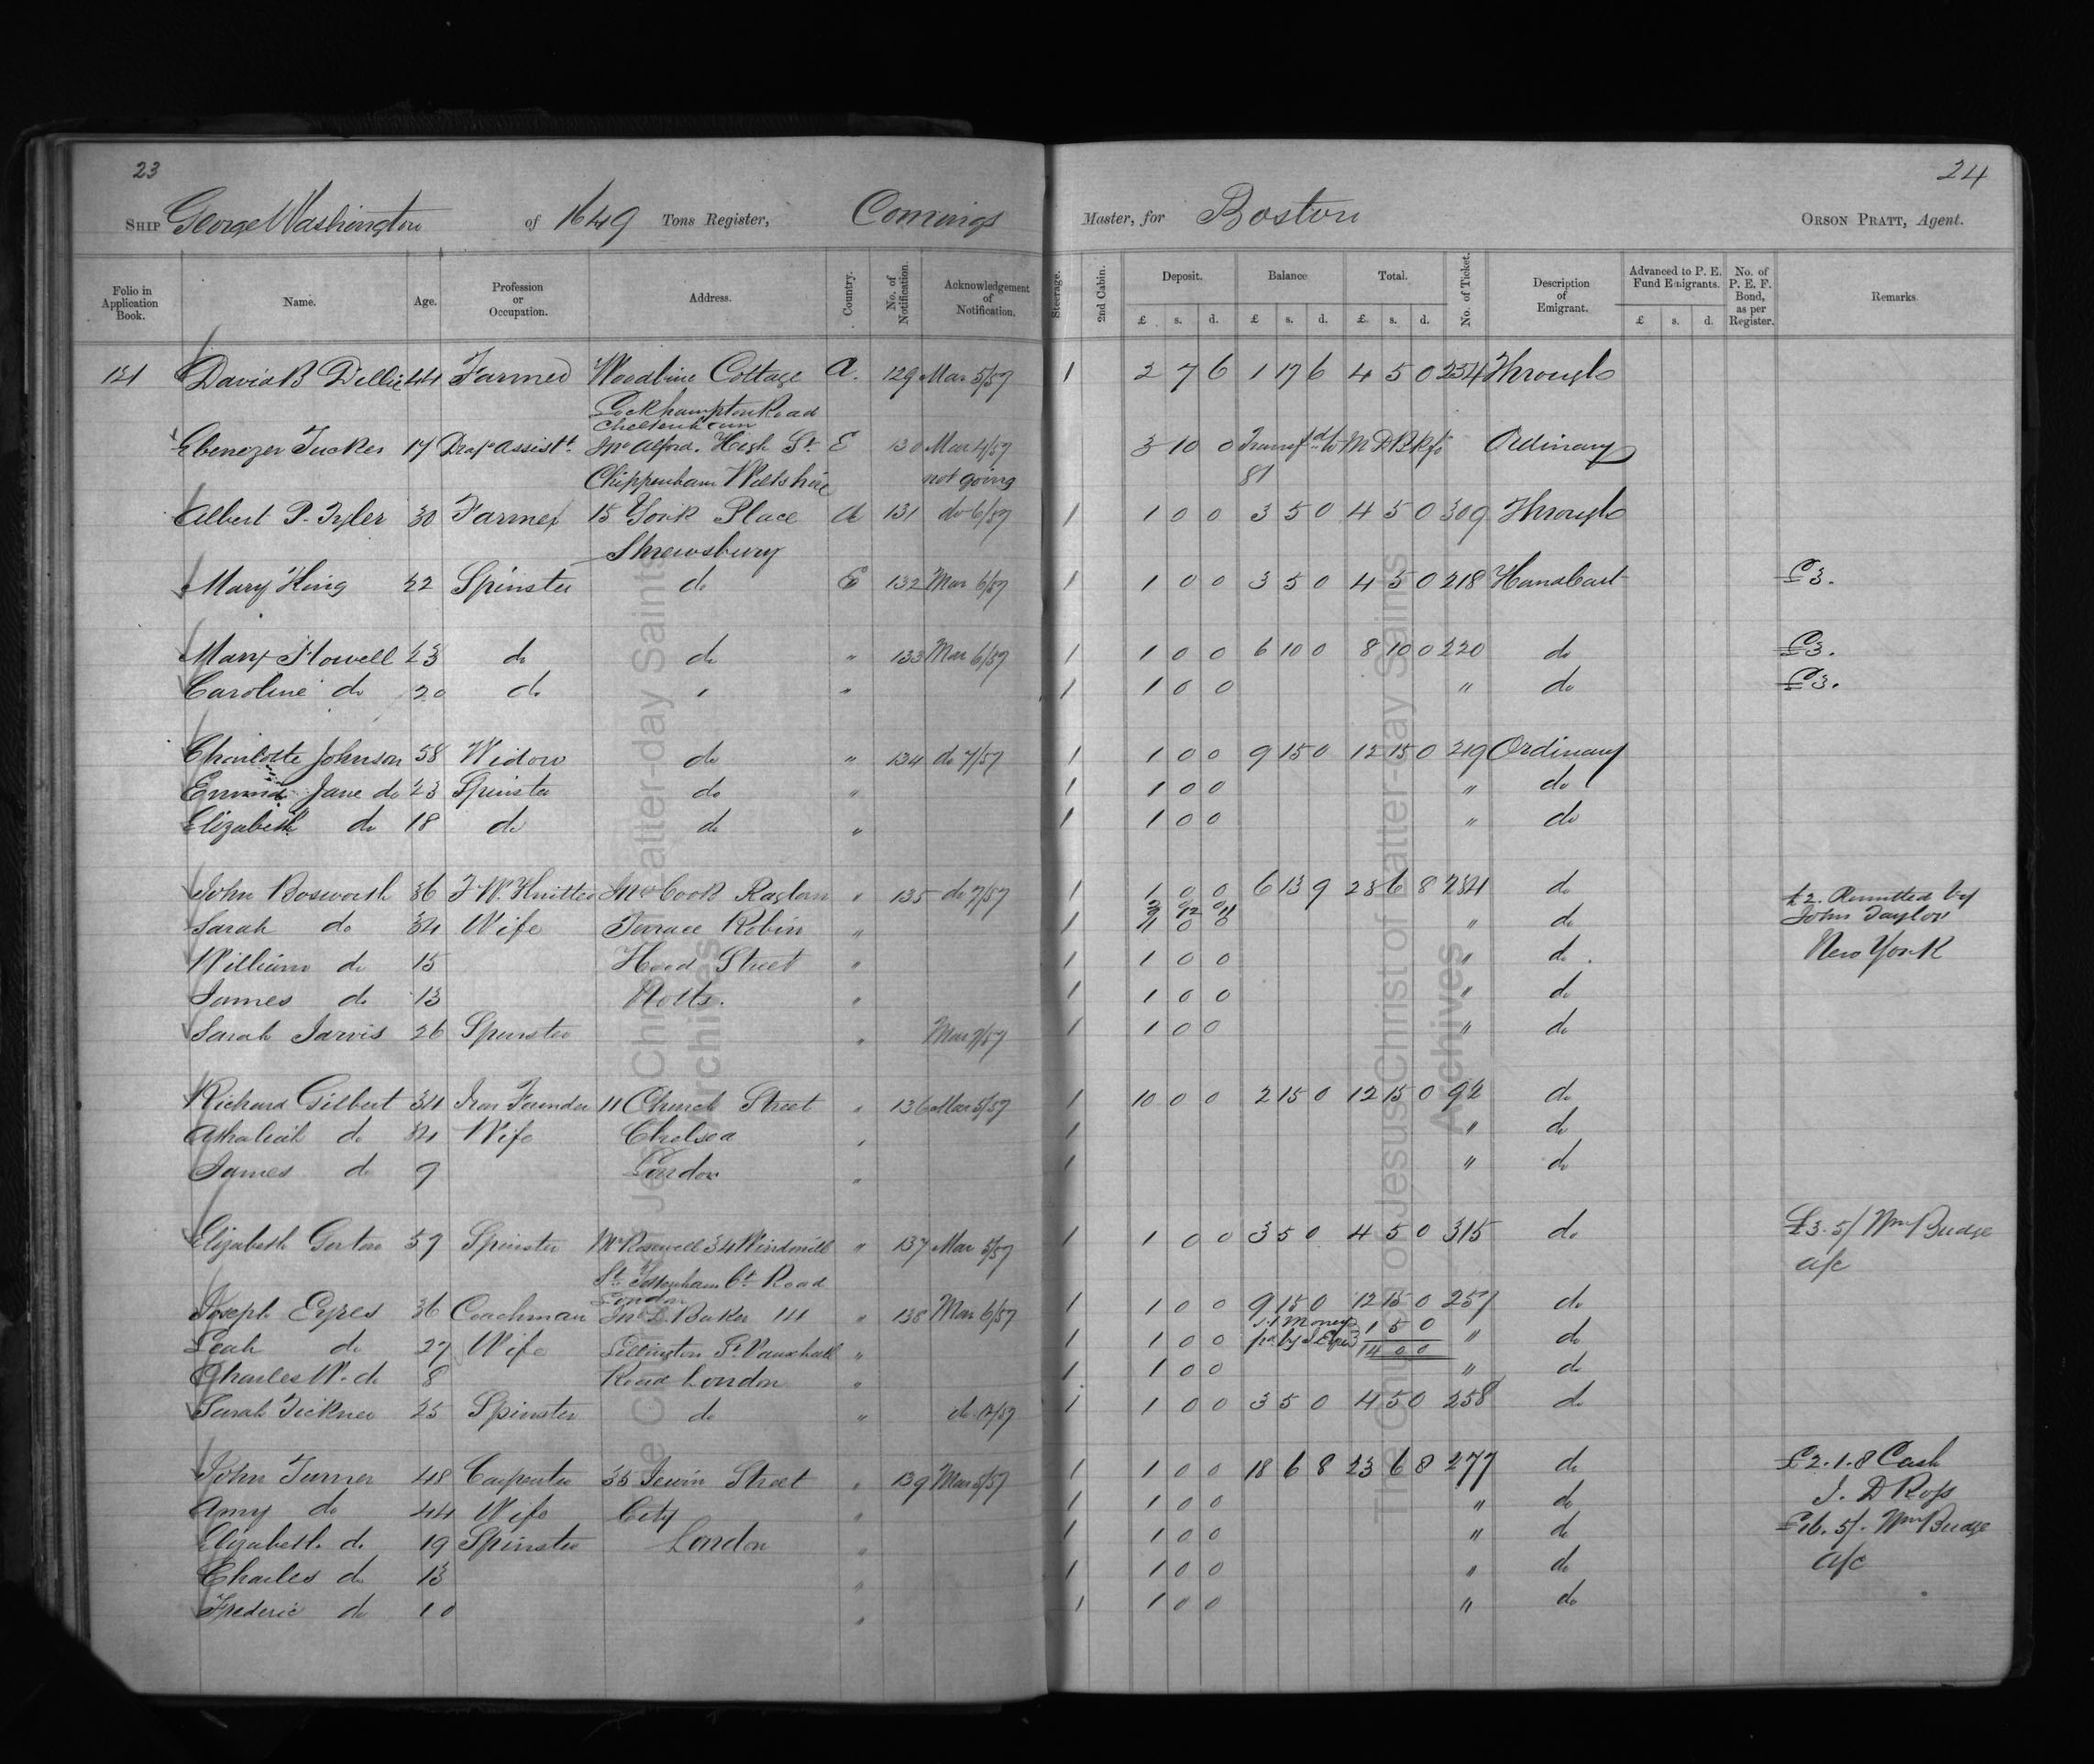 23
24
SHIP George Washington of 1649 Tons Register, Comings Master, for Boston ORSON PRATT, Agent.
Folio in Application Book. Name. Age. Profession or Occupation. Address. Country. No. of Notification. Acknowledgement of Notification. Steerage. 2nd Cabin. Deposit. Balance Total. No. of Ticket. Description of Emigrant. Advanced to P. E. Fund Emigrants. No. of P. E. F. Bond, as per Register. Remarks
£ s. d. £ s. d. £ s. d. £ s. d.
121 David B Dellie 44 Farmer Woodbine Cottage A. 129 Mar 5/57 1 2 7 6 1 17 6 4 5 0 234 Through
Leckhampton Road
Cheltenham
Ebenezer Tucker 17 Drap assist. Mr Alford. High St. E 130 Mar 4/57 3 10 0 Transfd to M D B Rfs Ordinary
Chippenham Wiltshire not going 81
Albert P. Tyler 30 Farmer 15 York Place A 131 do 6/57 1 1 0 0 3 5 0 4 5 0 309 Through
Shrewsbury
Mary King 22 Spinster do E 132 Mar 6/57 1 1 0 0 3 5 0 4 5 0 218 Handcart £3.
Mary Howell 23 do do " 133 Mar 6/57 1 1 0 0 6 10 0 8 10 0 220 do £3.
Caroline do 20 do " " 1 1 0 0 " do £3.
Charlotte Johnson 58 Widow do " 134 do 7/57 1 1 0 0 9 15 0 12 15 0 219 Ordinary
Emma Jane do 23 Spinster do " 1 1 0 0 " do
Elizabeth do 18 do do " 1 1 0 0 " do
John Bosworth 36 F. W. Knitter Mr Cook Raglan " 135 do 7/57 1 1 0 0 6 13 9 23 6 8 284 do £2. Remitted by
Sarah do 34 Wife Terrace Robin " 1 12 11 1 0 0 " do John Taylor
William do 15 Hood Street " 1 1 0 0 " do. New York
James do 13 Notts. " 1 1 0 0 " do
Sarah Jarvis 26 Spinster " Mar 7/57 1 1 0 0 " do
Richard Gilbert 34 Iron Founder 11 Church Street " 136 Mar 5/57 1 10 0 0 2 15 0 12 15 0 92 do
Athaliah do 34 Wife Chelsea " 1 " do
James do 9 London " 1 " do
Elizabeth Gorton 57 Spinster Mr Rosewell 34 Windmill " 137 Mar 5/57 1 1 0 0 3 5 0 4 5 0 315 do £3. 5/ Wm Budge
St. Tottenham Ct. Road a/c
London
Joseph Eyres 36 Coachman Mr L. Baker 14 " 138 Mar 6/57 1 1 0 0 9 15 0 12 15 0 257 do
Leah do 27 Wife Lillington St. Vauxhall " 1 1 0 0 Money pd by J. Eyres 1 5 0 " do
14 0 0
Charles W. do 8 Road London " 1 1 0 0 " do
Sarah Tickner 25 Spinster do " do 12/57 1 1 0 0 3 5 0 4 5 0 258 do
John Turner 48 Carpenter 35 Jewin Street " 139 Mar 5/57 1 1 0 0 18 6 8 23 6 8 277 do £2. 1. 8 Cash
Amy do 44 Wife City " 1 1 0 0 " do J. D Ross
Elizabeth do 19 Spinster London " 1 1 0 0 " do £16. 5/. Wm Budge
Charles do 13 " 1 1 0 0 " do a/c
Frederic do 10 " 1 1 0 0 " do
The Church of Jesus Christ of Latter-day Saints
Archives
The Church of Jesus Christ of Latter-day Saints
Archives